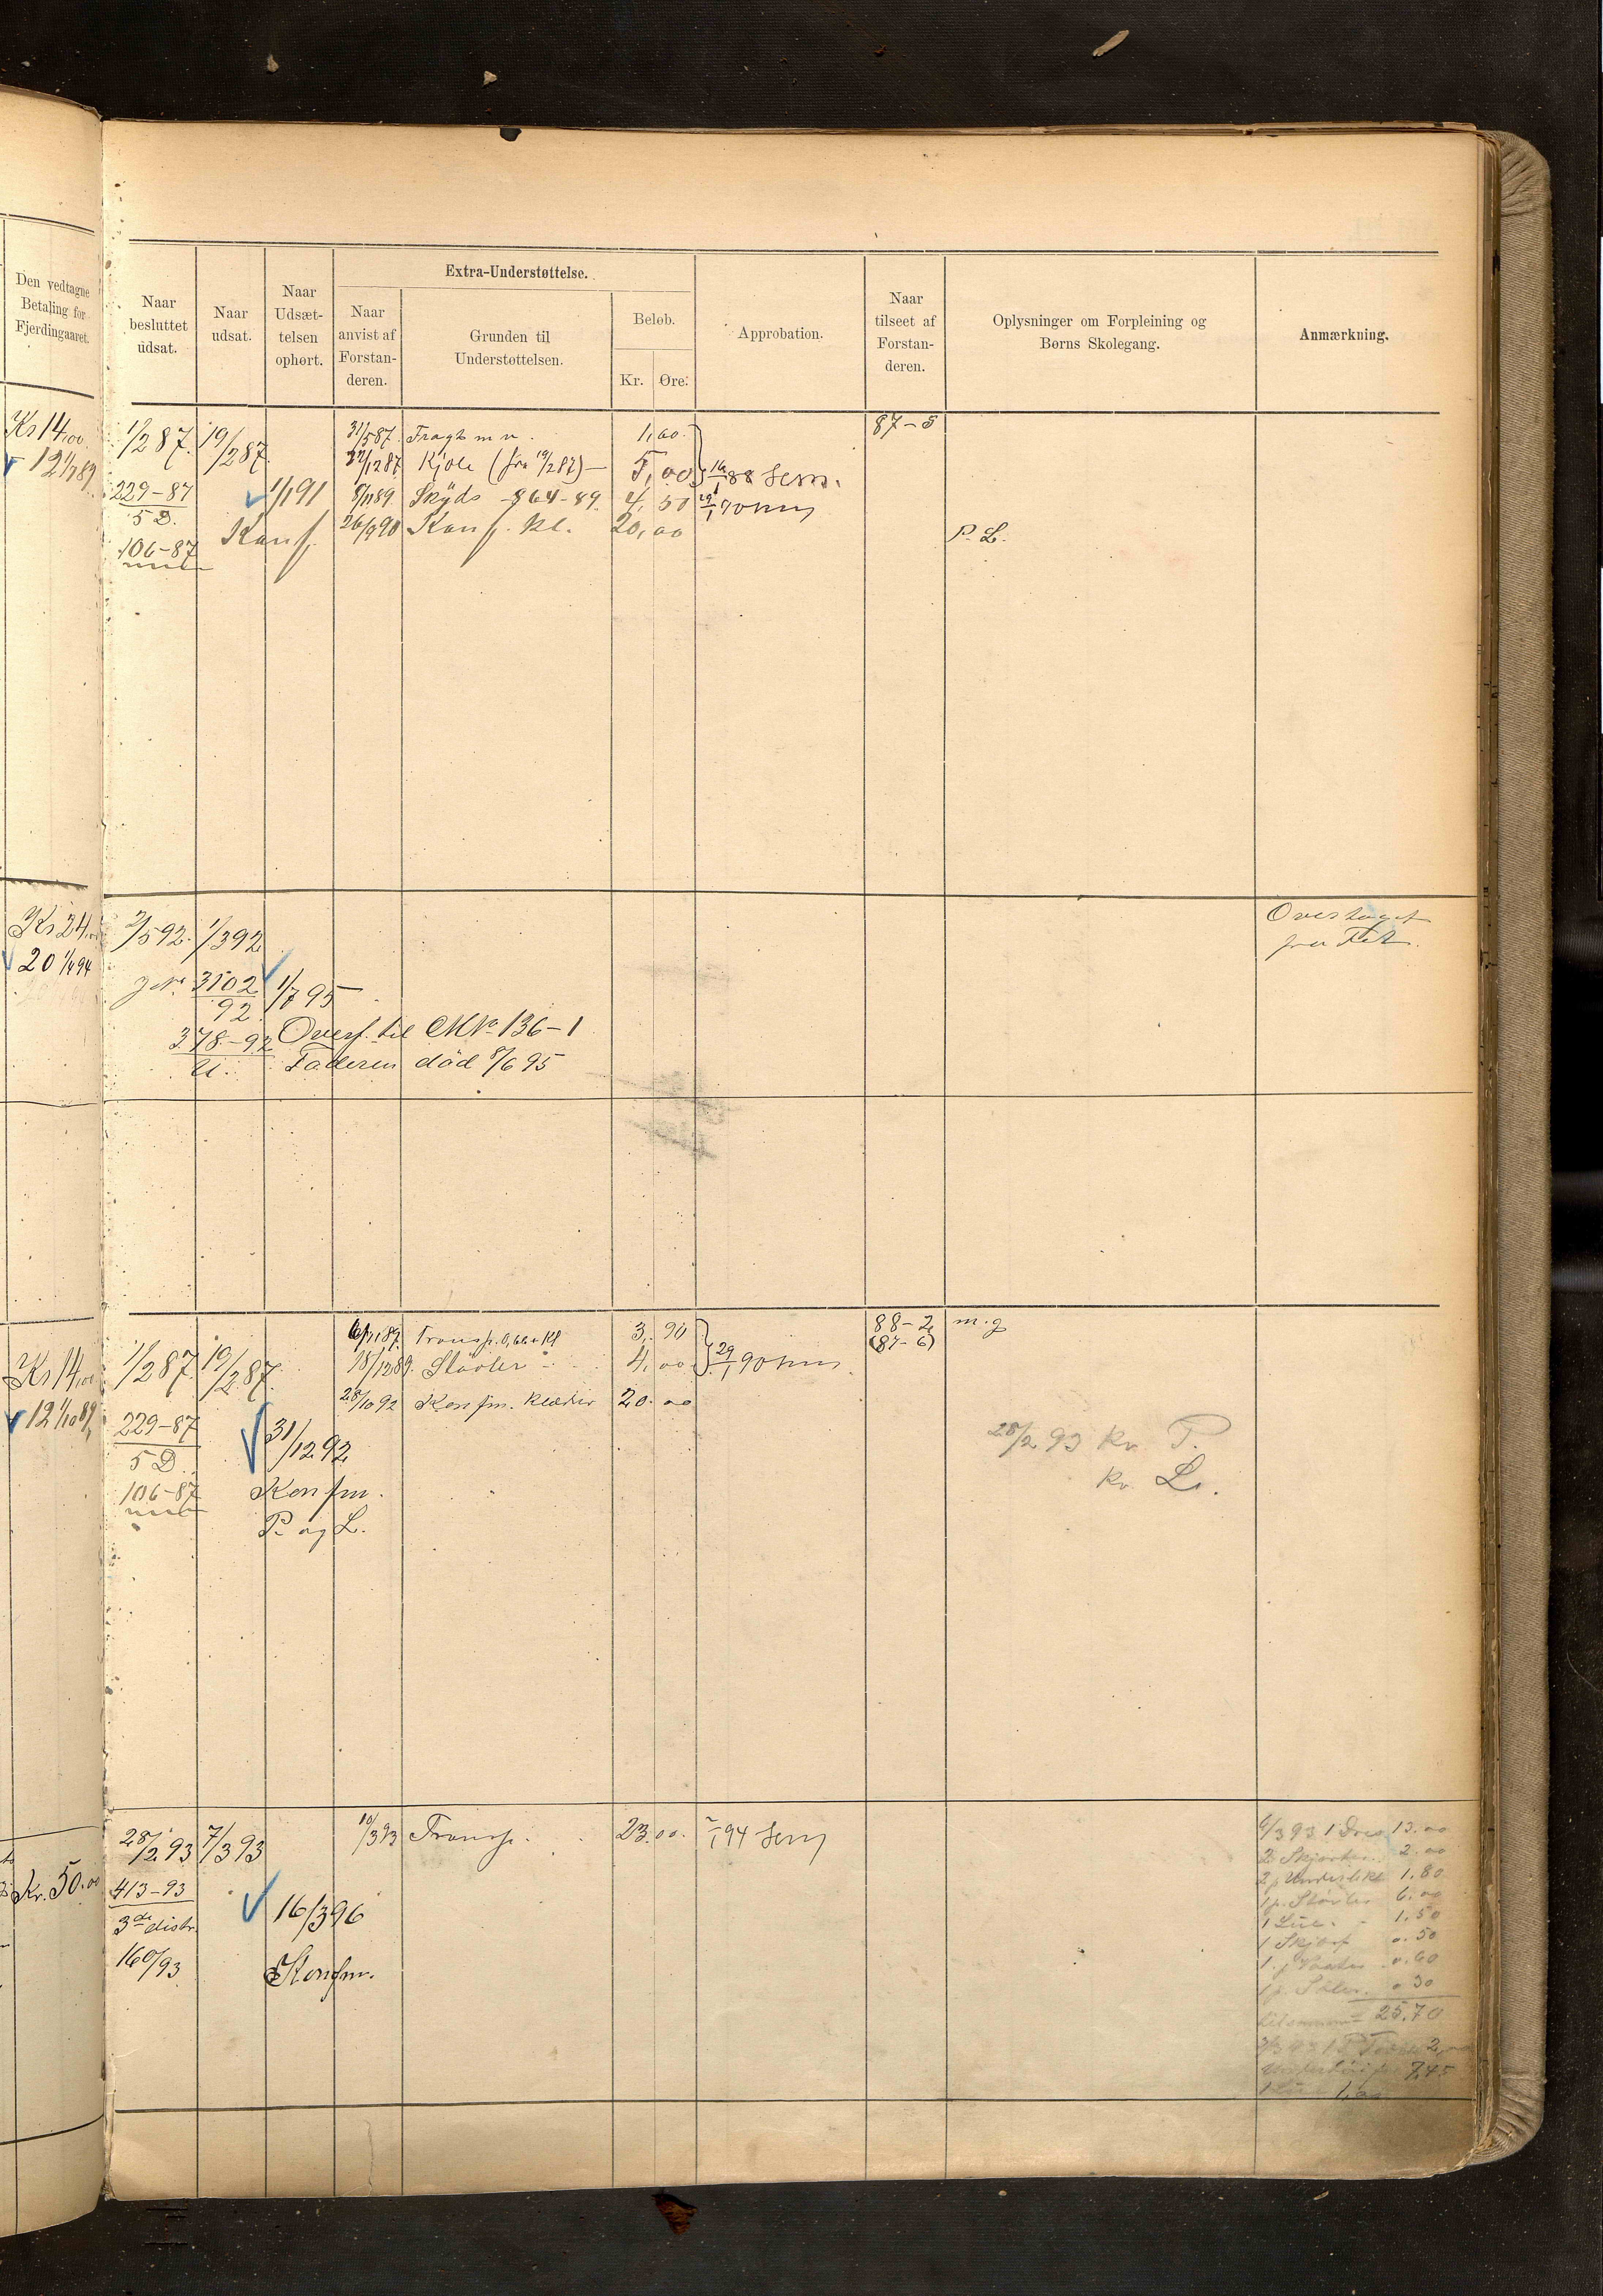 Den vedtagne
Betaling for
Fjerdingaaret.
Naar
besluttet
udsat.
Naar
udsat.
Naar
Udsæt-
telsen
ophørt.
Extra-Understøttelse.
Naar
anvist af
Forstan-
deren.
Grunden til
Understøttelsen.
Beløb.
Kr. Øre.
Approbation.
Naar
tilseet af
Forstan-
deren.
Oplysninger om Forpleining og
Børns Skolegang.
Anmærkning.
Kr 14,00
12 1/7 89
1/2 87. 19/2 87
229-87
5 D.
106-87
1/1 91
Konf.
31/5 87. Fragt m v. 1,60.
Kjole (fra 19/2 87) — 5,00
16/1 88
8/11 89 Skyds 864-89. 4,50
29/1 90
26/9 90 Konf. kl. 20,00
87-5
P. L.
Kr 24,00
20 1/4 94
2/5 92. 1/3 92
3102
92
378-92
U.
1/7 95
Overf. til MNo 136-1
Faderen död 8/6 95
Overtaget
fra Fet.
Kr 14,00
12 1/10 89
1/2 87. 19/2 87.
229-87
5 D.
106-87
31/12 92
Konfm.
P. og L.
Transp. 3,90
18/12 89. Støvler 4,00
29/1 90
28/10 92 Konfm. klæder 20.00
88-2
(87-6)
m. g
28/2 93 kv. P.
kv. L.
Kr. 50.00
28/2 93 7/3 93
413-93
3de distr.
160/93
16/3 96
Konfm.
10/3 93 Transp. 23.00.
2/1 94
6/3 93 1 Dres 13.00
2 Skjorter 2.00
1.80
1 p. Støvler 6.00
1 Lue. 1.50
1 Skjærf 0.50
0.60
0 30
tilsammen = 25.70
2,00
7,45